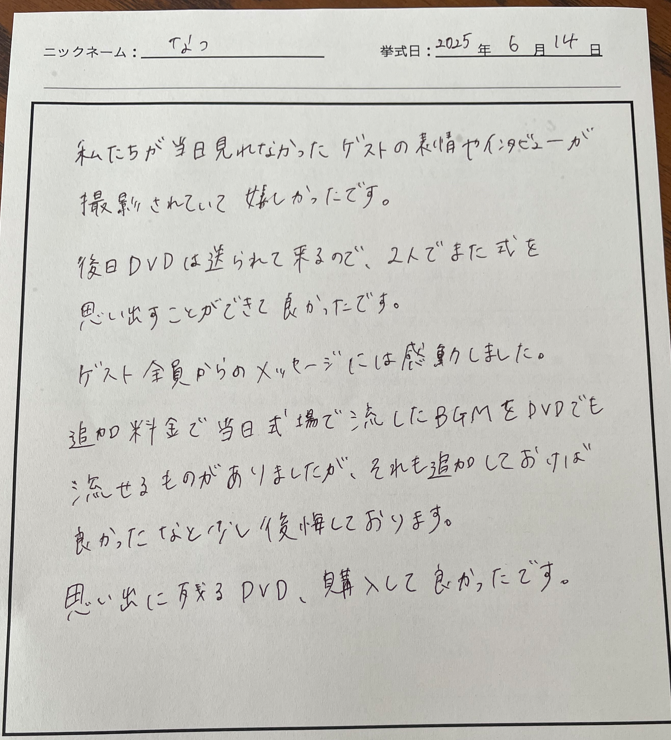 ニックネーム： なつ 挙式日： 2025 年 6 月 14 日
私たちが当日見れなかったゲストの表情やインタビューが
撮影されていて嬉しかったです。
後日DVDは送られて来るので、2人でまた式を
思い出すことができて良かったです。
ゲスト全員からのメッセージには感動しました。
追加料金で当日式場で流したBGMをDVDでも
流せるものがありましたが、それも追加しておけば
良かったなと少し後悔しております。
思い出に残るDVD、購入して良かったです。